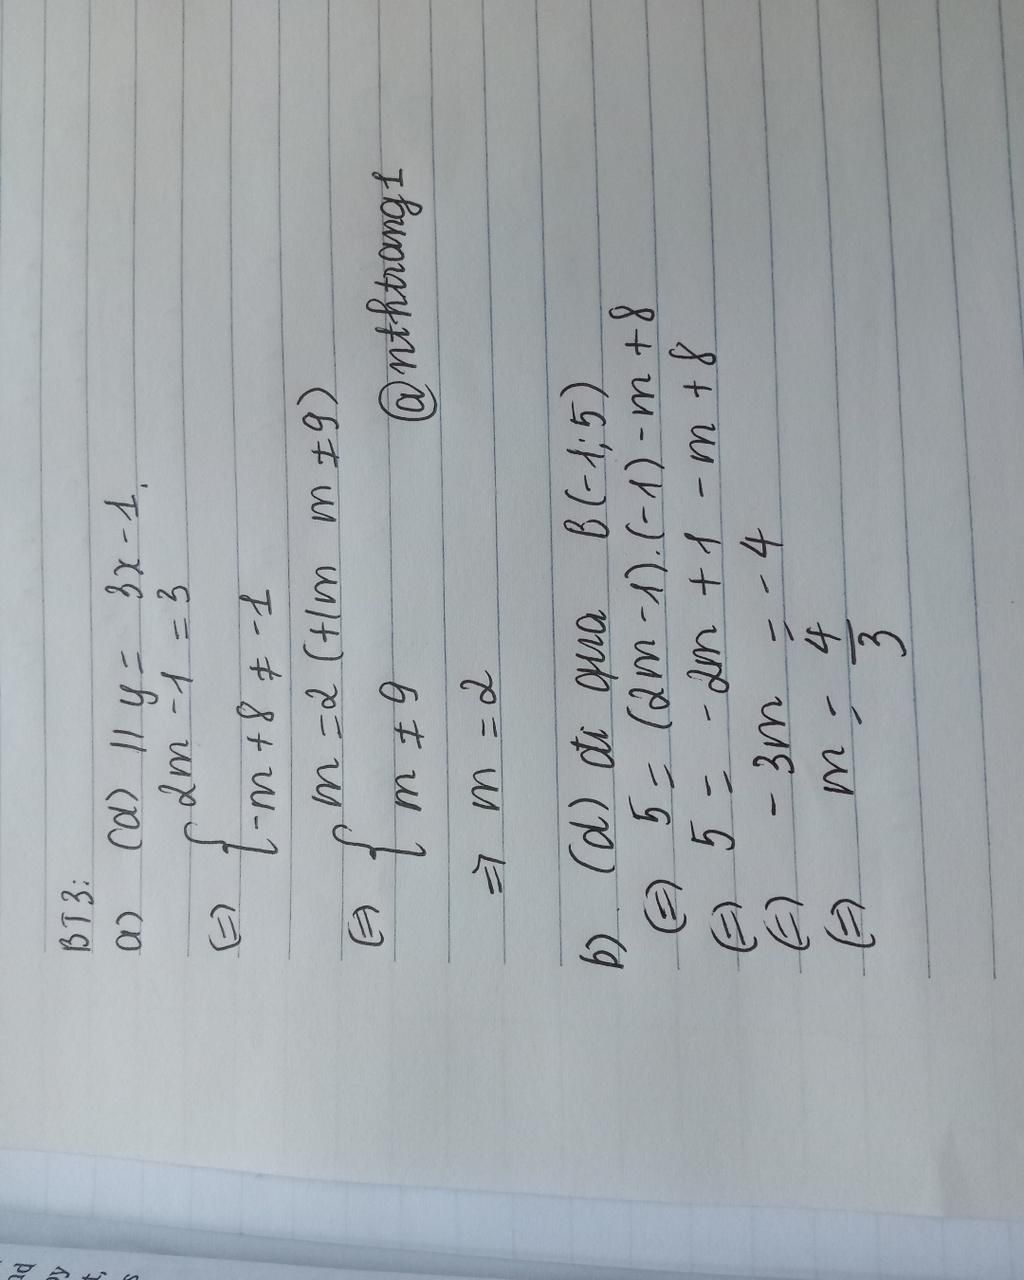 BT3:
a) (d) // y = 3x - 1.
(=) { 2m - 1 = 3
-m + 8 ≠ -1
(=) { m = 2 (t/m m ≠ 9)
m ≠ 9
@nthtrang1
=> m = 2
b) (d) đi qua B(-1;5)
(=) 5 = (2m - 1).(-1) - m + 8
(=) 5 = -2m + 1 - m + 8
(=) -3m = -4
(=) m = 4/3